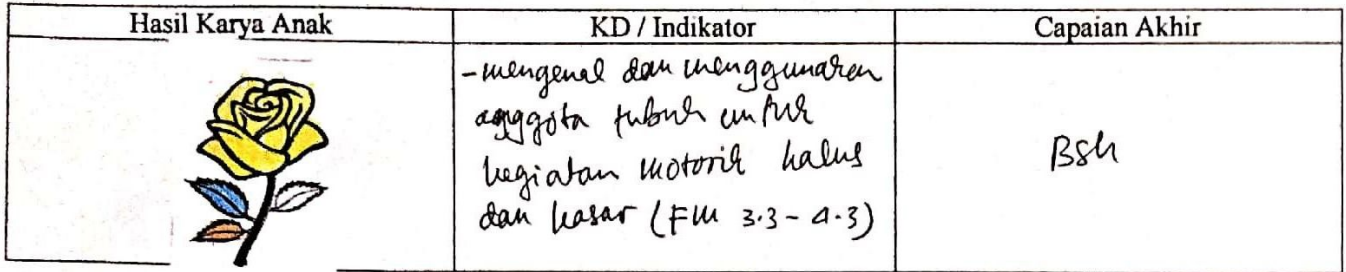 Hasil Karya Anak KD / Indikator Capaian Akhir
- mengenal dan menggunakan
anggota tubuh untuk
kegiatan motorik halus
dan kasar (FM 3.3 - 4.3)
BSH